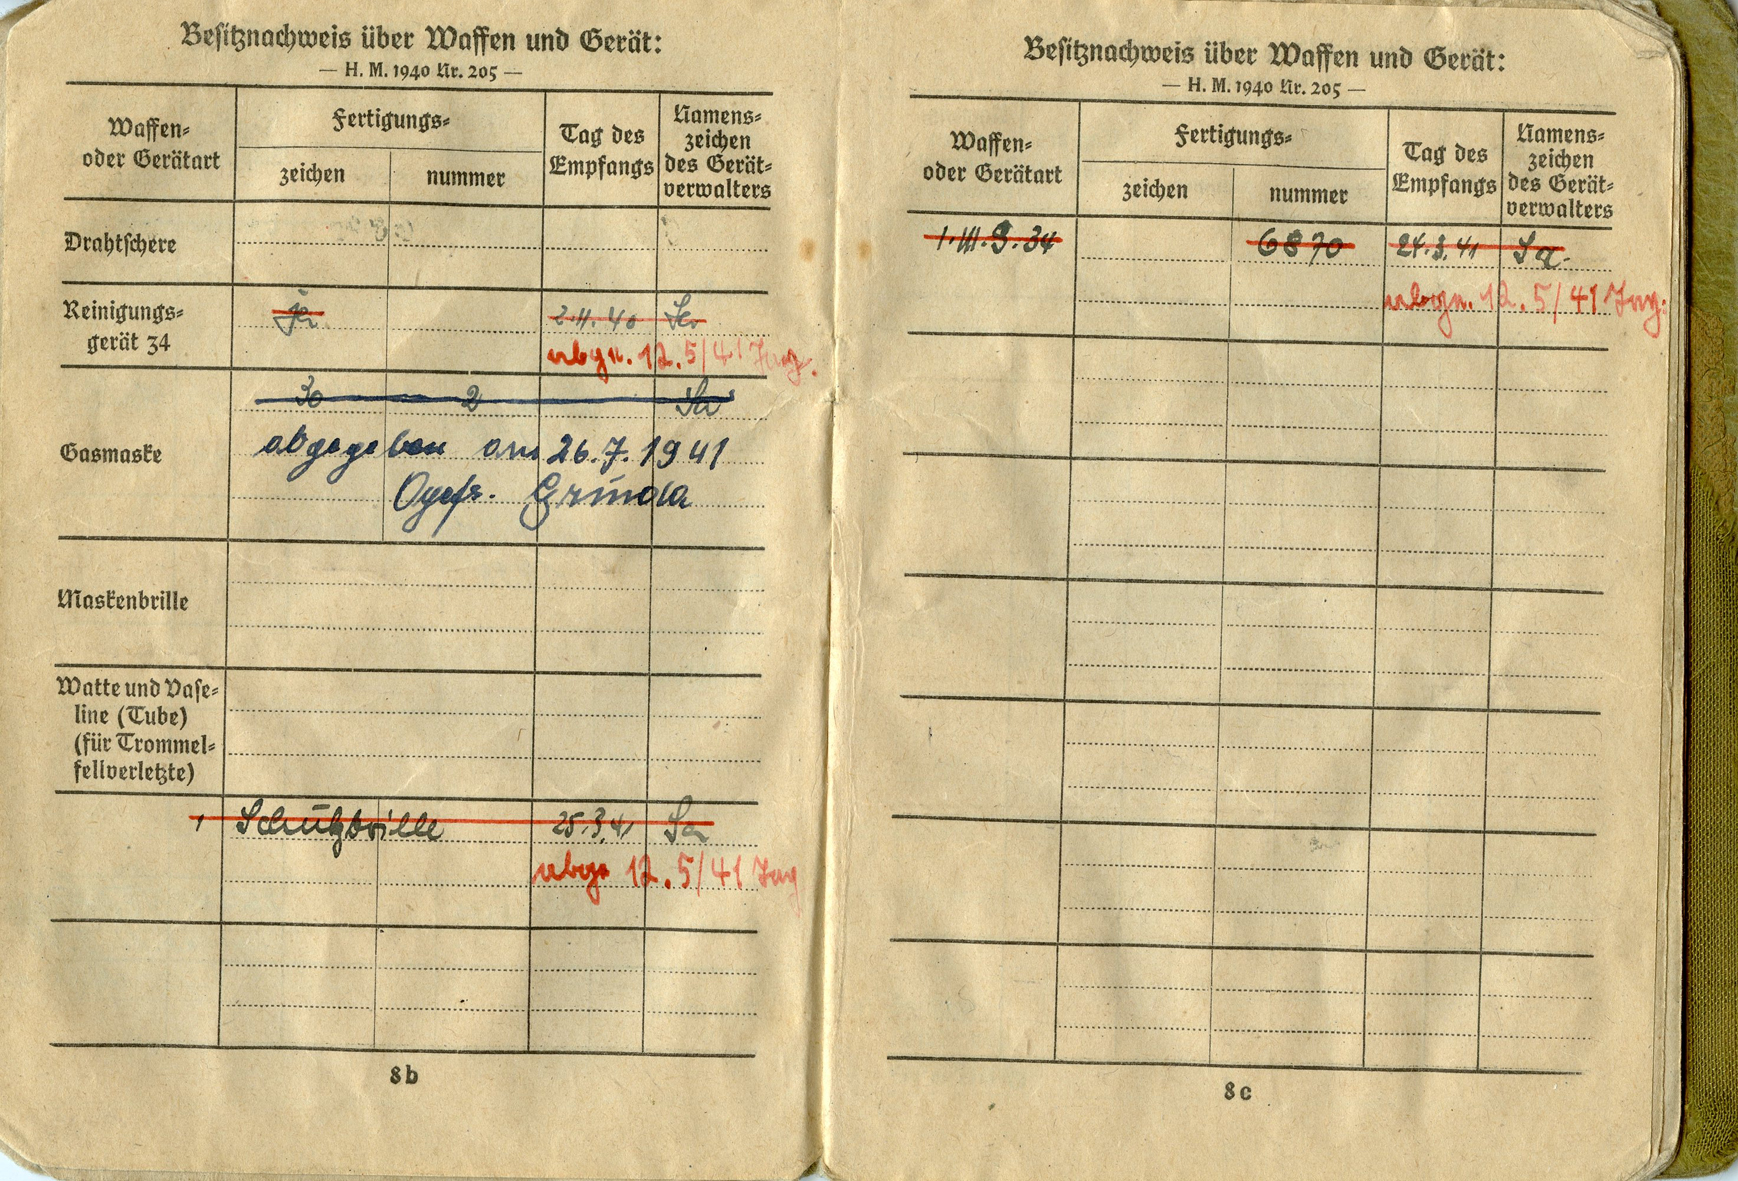 Besitznachweis über Waffen und Gerät:
— H. M. 1940 Nr. 205 —
Waffen-
oder Gerätart
Fertigungs-
zeichen
nummer
Tag des
Empfangs
Namens-
zeichen
des Gerät-
verwalters
Drahtschere
Reinigungs-
gerät 34
ja. 2.11.40
abgn. 12.5/41
Gasmaske
30 2 Sa
abgegeben am 26.7.1941
Ogefr. Grunda
Maskenbrille
Watte und Vase-
line (Tube)
(für Trommel-
fellverletzte)
1 Schutzbrille 25.3.41 Sa
abgn 12.5/41
8b
Besitznachweis über Waffen und Gerät:
— H. M. 1940 Nr. 205 —
Waffen-
oder Gerätart
Fertigungs-
zeichen
nummer
Tag des
Empfangs
Namens-
zeichen
des Gerät-
verwalters
6870 24.3.41 Sa.
abgn. 12.5/41
8c